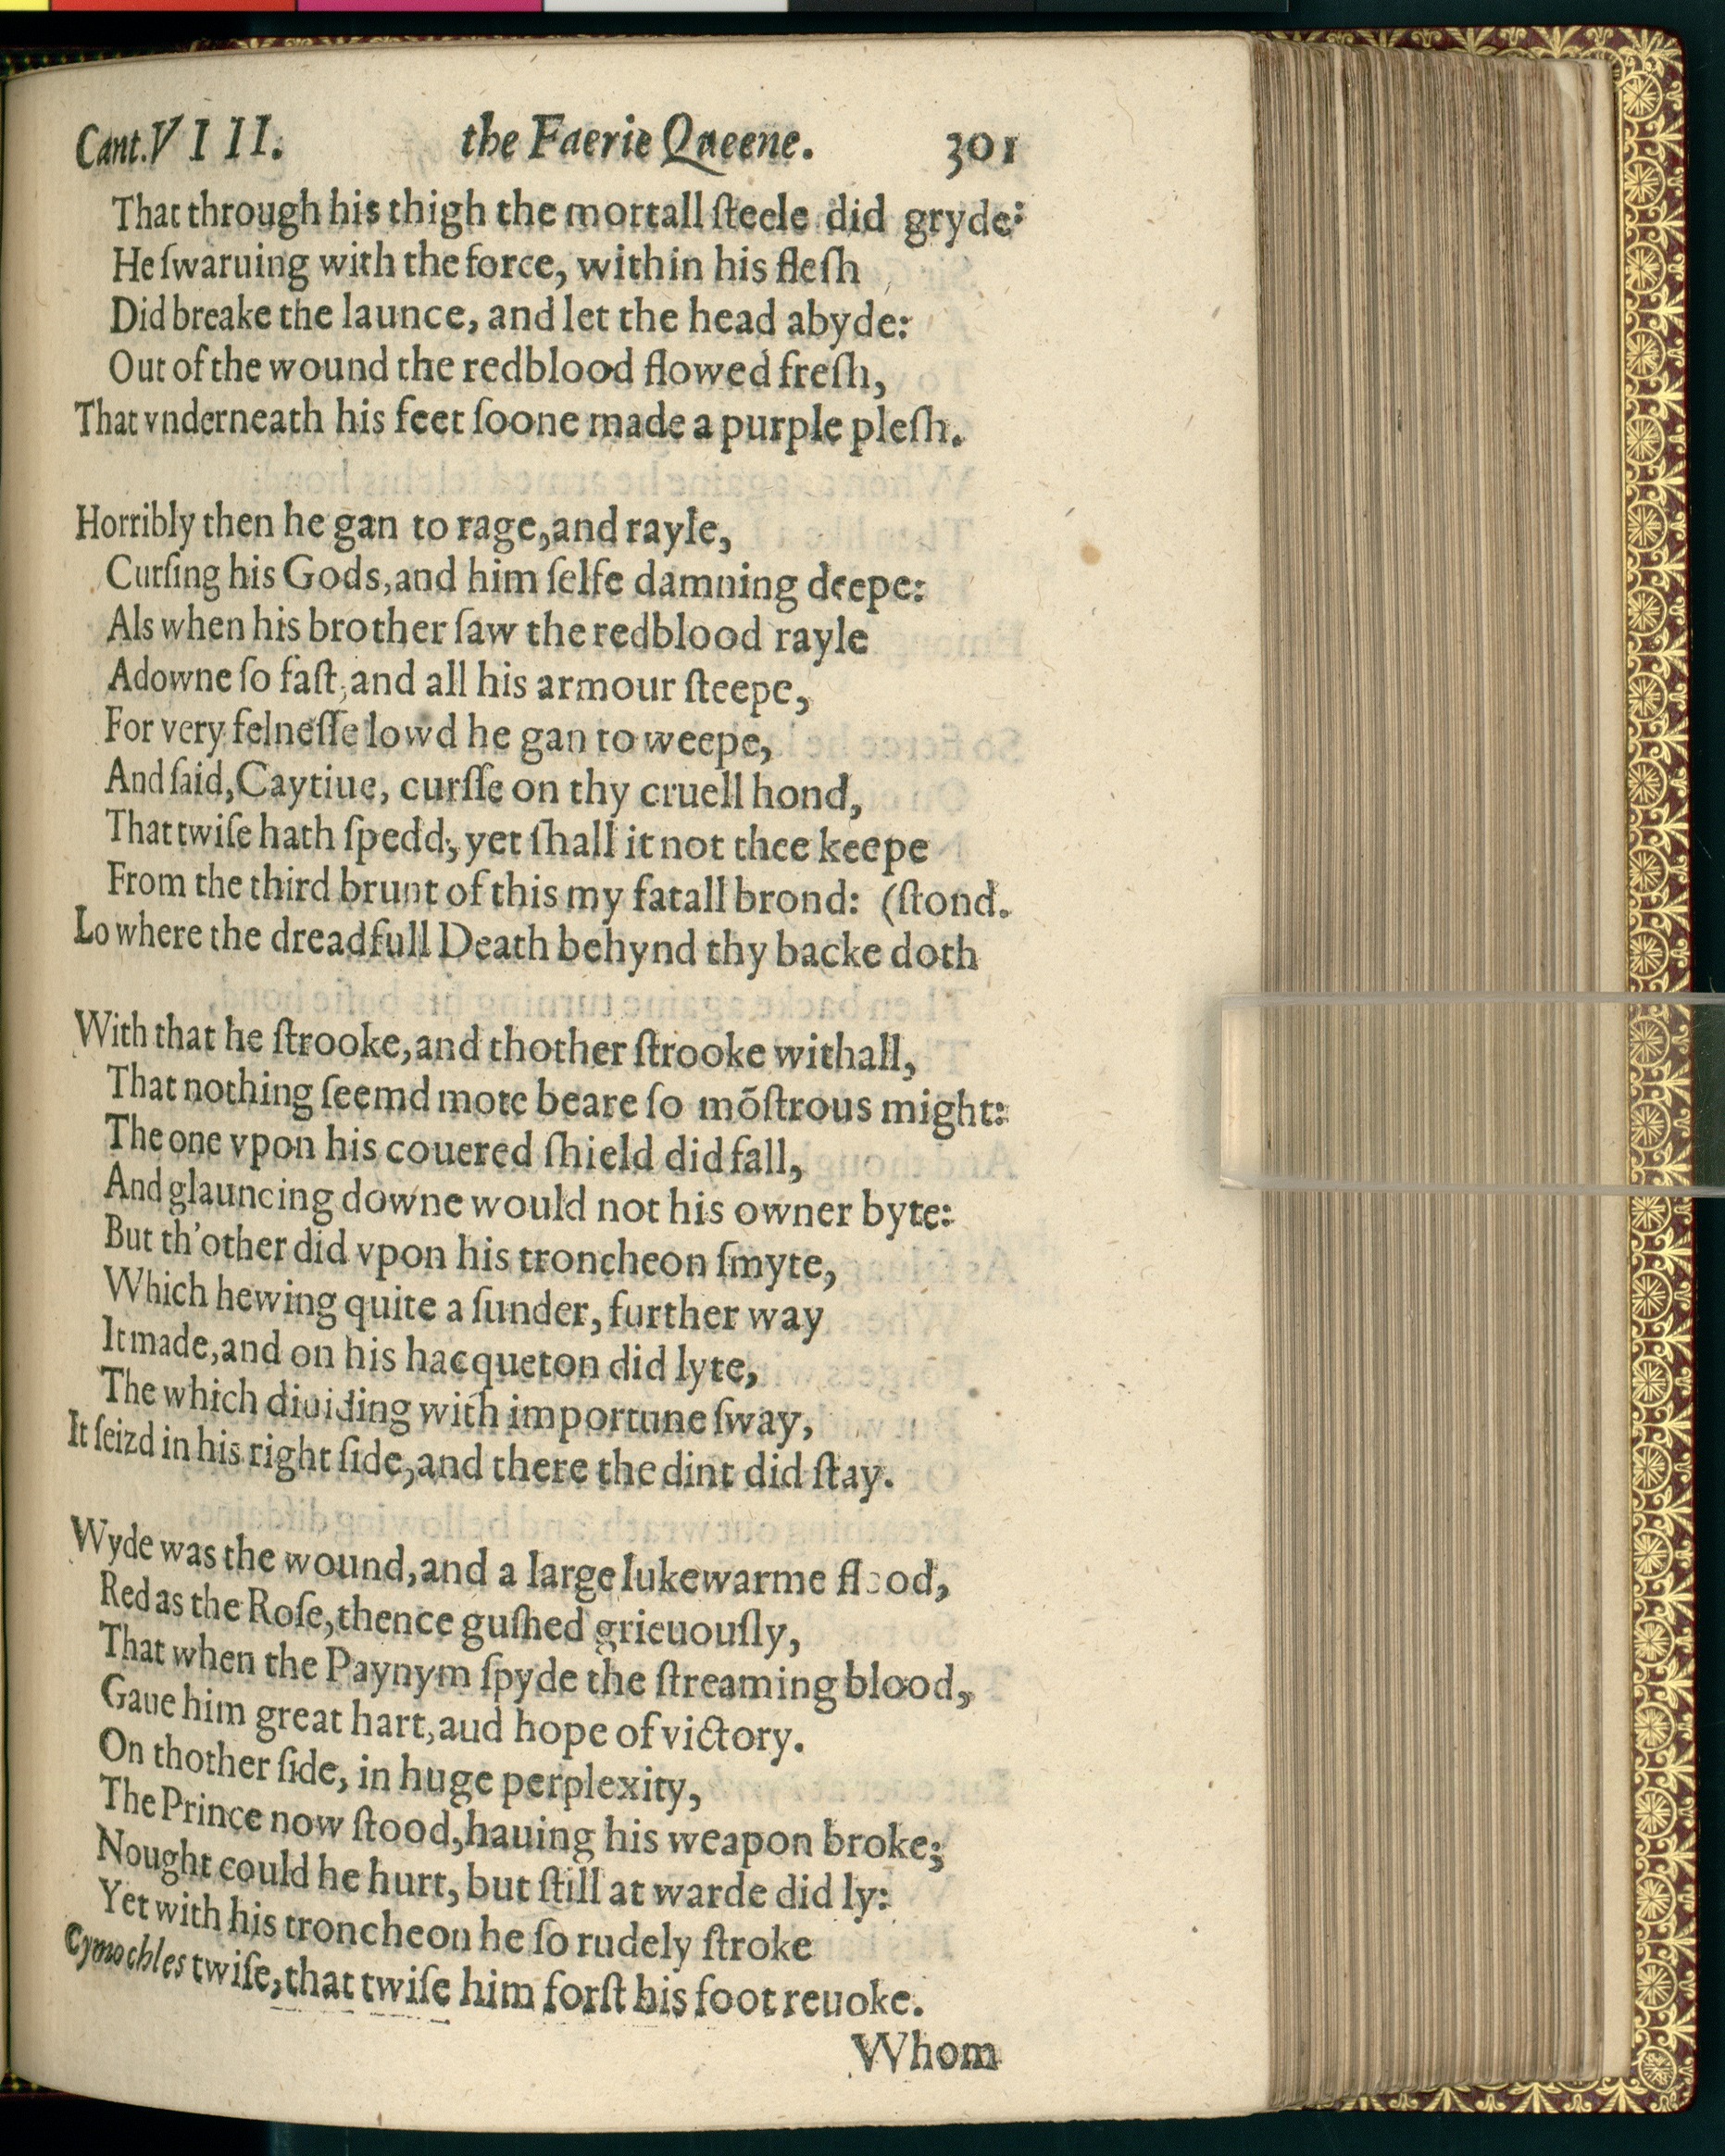 Cant.VIII. the Faerie Queene. 301
That through his thigh the mortall ſteele did gryde:
He ſwaruing with the force, within his fleſh
Did breake the launce, and let the head abyde:
Out of the wound the redblood flowed freſh,
That vnderneath his feet ſoone made a purple pleſh.
Horribly then he gan to rage, and rayle,
Curſing his Gods, and him ſelfe damning deepe:
Als when his brother ſaw the redblood rayle
Adowne ſo faſt, and all his armour ſteepe,
For very felneſſe lowd he gan to weepe,
And ſaid, Caytiue, curſſe on thy cruell hond,
That twiſe hath ſpedd, yet ſhall it not thee keepe
From the third brunt of this my fatall brond: (ſtond.
Lo where the dreadfull Death behynd thy backe doth
With that he ſtrooke, and thother ſtrooke withall,
That nothing ſeemd mote beare ſo mõſtrous might:
The one vpon his couered ſhield did fall,
And glauncing downe would not his owner byte:
But th'other did vpon his troncheon ſmyte,
Which hewing quite a ſunder, further way
It made, and on his hacqueton did lyte,
The which diuiding with importune ſway,
It ſeizd in his right ſide, and there the dint did ſtay.
Wyde was the wound, and a large lukewarme flood,
Red as the Roſe, thence guſhed grieuouſly,
That when the Paynym ſpyde the ſtreaming blood,
Gaue him great hart, aud hope of victory.
On thother ſide, in huge perplexity,
The Prince now ſtood, hauing his weapon broke;
Nought could he hurt, but ſtill at warde did ly:
Yet with his troncheon he ſo rudely ſtroke
Cymochles twiſe, that twiſe him forſt his foot reuoke.
Whom